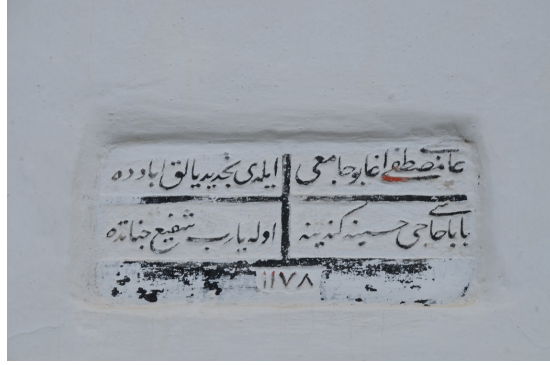 مصطفى اغا بو جامعى ايلدى تجديد يالق اباددە
باباسى حاجى حسينه كندينه اوله يارب شفيع جناتدە
١١٧٨